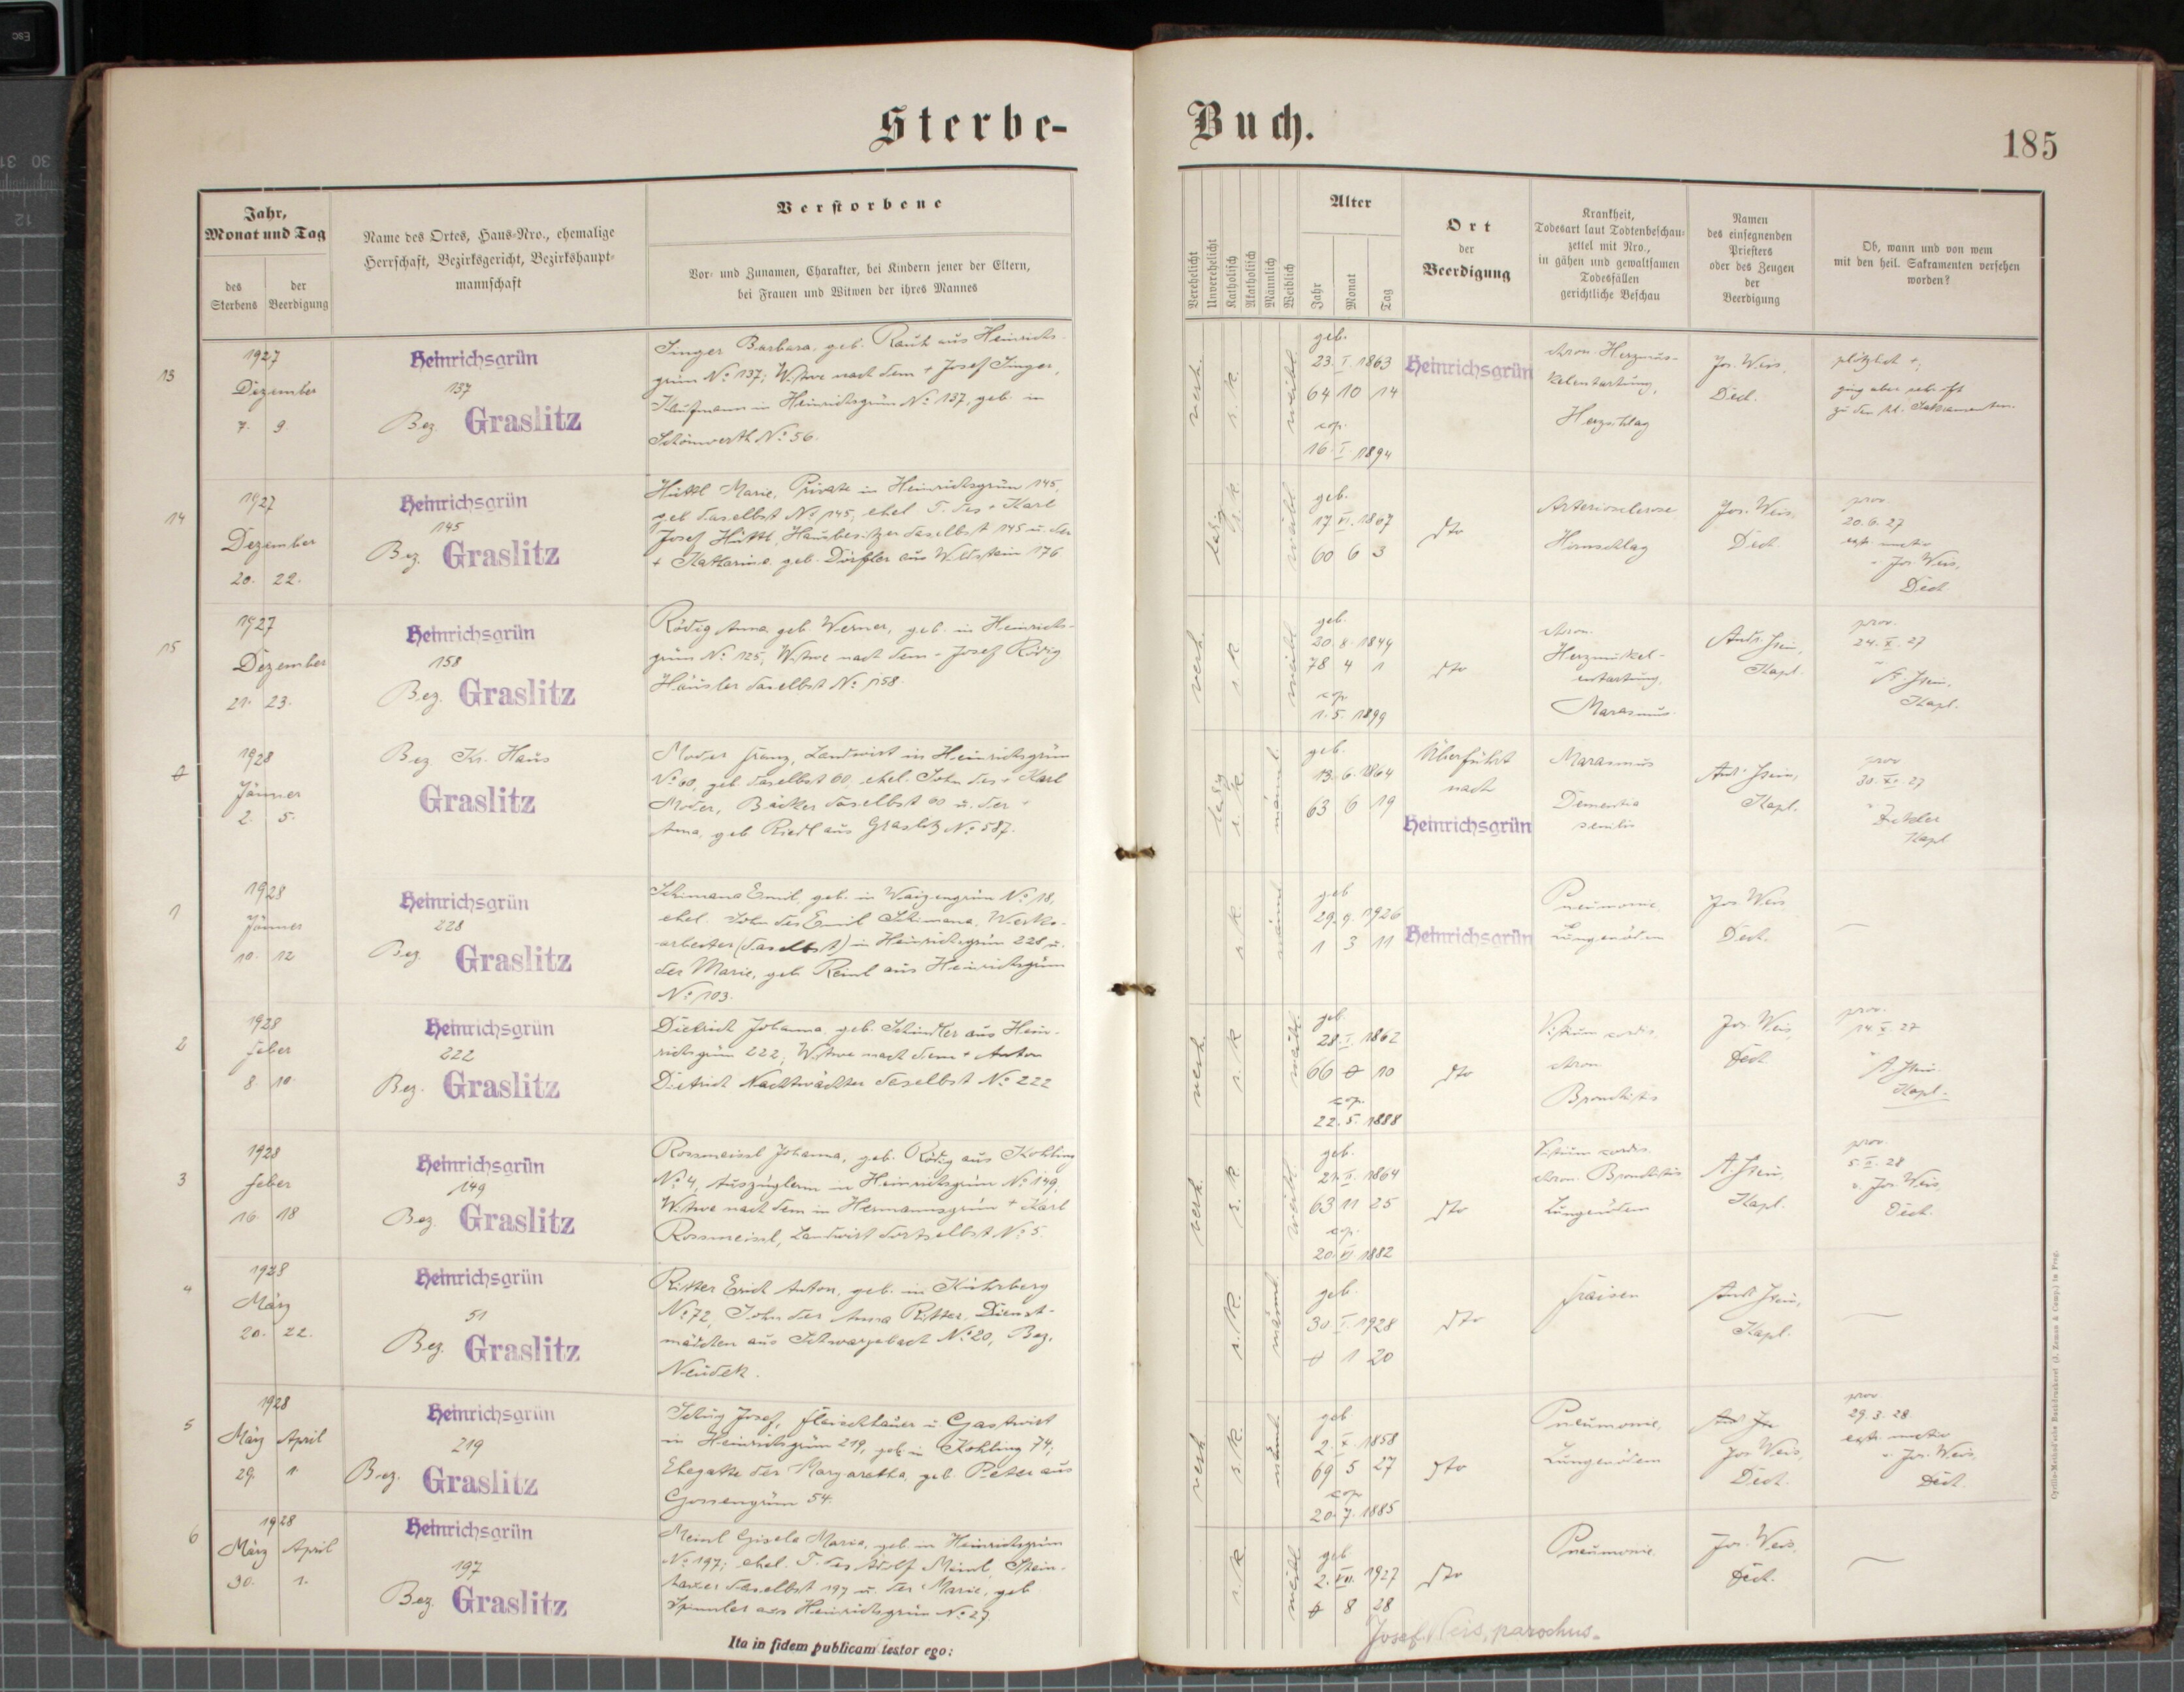 Sterbe-
Buch.
185
Jahr,
Monat und Tag
des Sterbens
der Beerdigung
Name des Ortes, Haus-Nro., ehemalige
Herrschaft, Bezirksgericht, Bezirkshaupt-
mannschaft
Verstorbene
Vor- und Zunamen, Charakter, bei Kindern jener der Eltern,
bei Frauen und Witwen der ihres Mannes
Verehelicht
Unverehelicht
Katholisch
Akatholisch
Männlich
Weiblich
Alter
Jahr
Monat
Tag
Ort
der
Beerdigung
Krankheit,
Todesart laut Todtenbeschau-
zettel mit Nro.,
in gähen und gewaltsamen
Todesfällen
gerichtliche Beschau
Namen
des einsegnenden
Priesters
oder des Zeugen
der
Beerdigung
Ob, wann und von wem
mit den heil. Sakramenten versehen
worden?
13
1927
Dezember
7. 9.
Heinrichsgrün
137
Bez. Graslitz
Singer Barbara, geb. Rauh aus Heinrichs-
grün No 137; Witwe nach dem + Josef Singer,
Kaufmann in Heinrichsgrün No 137, geb. in
Schönwerth No 56.
verh.
r. k.
weibl.
geb.
23. I. 1863
64 10 14
cop.
16. I. 1894
Heinrichsgrün
chron. Herzmus-
kelentartung,
Herzschlag
Jos. Weis,
Dech.
plötzlich +,
ging aber sehr oft
zu den hl. Sakramenten.
14
1927
Dezember
20. 22.
Heinrichsgrün
145
Bez. Graslitz
Hüttl Marie, Private in Heinrichsgrün 145,
geb. daselbst No 145, ehel. T. des + Karl
Josef Hüttl, Hausbesitzer daselbst 145 u. der
+ Katharina geb. Dörfler aus Wildstein 176
ledig
r. k.
weibl.
geb.
17. VI. 1867
60 6 3
dto
Arteriosclerose
Hirnschlag
Jos. Weis
Dech.
prov.
20.6.27
extr. unctio
Jos. Weis,
Dech.
15
1927
Dezember
21. 23.
Heinrichsgrün
158
Bez. Graslitz
Rödig Anna, geb. Werner, geb. in Heinrichs-
grün No 125, Witwe nach dem + Josef Rödig
Häusler daselbst No 158.
verh.
r. k.
weibl.
geb.
20. 8. 1849
78 4 1
cop.
1. 5. 1899
dto
chron.
Herzmuskel-
entartung.
Marasmus.
Kapl.
prov.
24. X. 27
Kapl.
0
1928
Jänner
2. 5.
Bez. Kr. Haus
Graslitz
Moder Franz, Landwirt in Heinrichsgrün
No 60, geb. daselbst 60, ehel. Sohn des + Karl
Moder, Bäcker daselbst 60 u. der +
Anna, geb. Riedl aus Graslitz No 587.
ledig
r. k.
männl.
geb.
13. 6. 1864
63 6 19
Überführt
nach
Heinrichsgrün
Marasmus
Dementia
senilis
Kapl.
prov.
30. XI. 27
Kapl.
1
1928
Jänner
10. 12
Heinrichsgrün
228
Bez. Graslitz
Schimana Emil, geb. in Waizengrün No 18,
ehel. Sohn des Emil Schimana, Werks-
arbeiter (daselbst) in Heinrichsgrün 228 u.
der Marie, geb. Reinl aus Heinrichsgrün
No 103.
r. k.
männl.
geb
29. 9. 1926
1 3 11
Heinrichsgrün
Pneumonie
Lungenödem
Jos. Weis
Dech.
—
2
1928
Feber
8. 10.
Heinrichsgrün
222
Bez. Graslitz
Dietrich Johanna, geb. Schindler aus Hein-
richsgrün 222; Witwe nach dem + Anton
Dietrich Nachtwächter daselbst No 222
verh.
r. k.
weibl.
geb.
28. I. 1862
66 0 10
cop.
22. 5. 1888
dto
Vitium cordis.
chron.
Bronchitis
Jos. Weis,
Dech
prov.
14. X. 27
Kapl.
3
1928
Feber
16. 18
Heinrichsgrün
149
Bez. Graslitz
Rossmeissl Johanna, geb. Rödig aus Kohling
No 4, Auszüglerin in Heinrichsgrün No 149,
Witwe nach dem in Hermannsgrün + Karl
Rossmeissl, Landwirt dortselbst No 5.
verh.
r. k.
weibl.
geb.
21. II. 1864
63 11 25
cop.
20. VI 1882
dto
Vitium cordis.
chron. Bronchitis
Lungenödem
Kapl.
prov.
5. II. 28
v. Jos. Weis,
Dech.
4
1928
März
20. 22.
Heinrichsgrün
51
Bez. Graslitz
Ritter Erich Anton, geb. in Kührberg
No 72, Sohn der Anna Ritter, Dienst-
mädchen aus Schwarzebach No 20, Bez.
Neudek.
r. k.
männl.
geb.
30. I. 1928
0 1 20
dto
Fraisen
Kapl.
—
5
1928
März April
29. 1.
Heinrichsgrün
219
Bez. Graslitz
Schug Josef, Fleischhauer u. Gastwirt
in Heinrichsgrün 219, geb. in Kohling 74;
Ehegatte der Margaretha, geb. Peter aus
Gossengrün 54.
verh
r. k.
männl.
geb
2. X. 1858
69 5 27
cop.
20. 7. 1885
dto
Pneumonie,
Lungenödem
Jos. Weis,
Dech.
prov.
29. 3. 28.
extr. unctio
v. Jos. Weis,
Dech.
6
1928
März April
30. 1.
Heinrichsgrün
197
Bez. Graslitz
Meinl Gisela Maria, geb. in Heinrichsgrün
No 197; ehel. T. des Adolf Meinl, Stein-
hauer daselbst 197 u. der Marie, geb.
Spinnler aus Heinrichsgrün No 27
r. k.
weibl.
geb
2. VII. 1927
0 8 28
dto
Pneumonie.
Jos. Weis,
Dech.
—
Josef Weis, parochus.
Ita in fidem publicam testor ego: